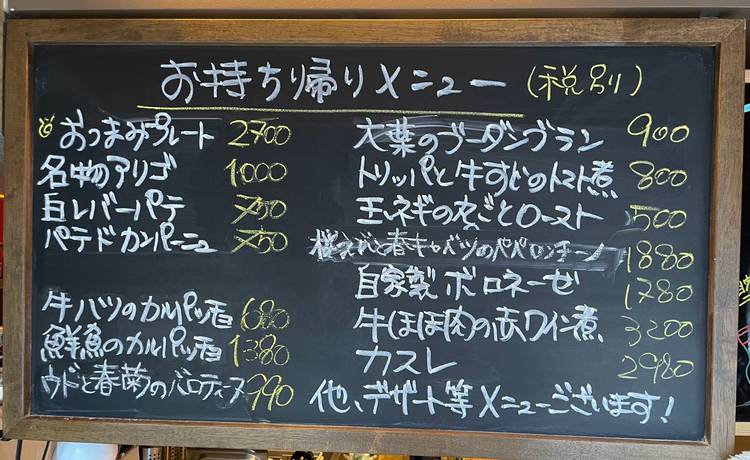 お持ち帰りメニュー (税別)
おつまみプレート 2700
名物アリゴ 1,000
白レバーパテ 750
パテドカンパーニュ 750
牛ハツのカルパッチョ 680
鮮魚のカルパッチョ 1380
ウドと春菊のバロティーヌ 990
大葉のブーダンブラン 900
トリッパと牛すじのトマト煮 800
玉ネギの丸ごとロースト 500
桜えびと春キャベツのペペロンチーノ 1880
自家製ボロネーゼ 1780
牛ほほ肉の赤ワイン煮 3200
カスレ 2980
他、デザート等メニューございます!